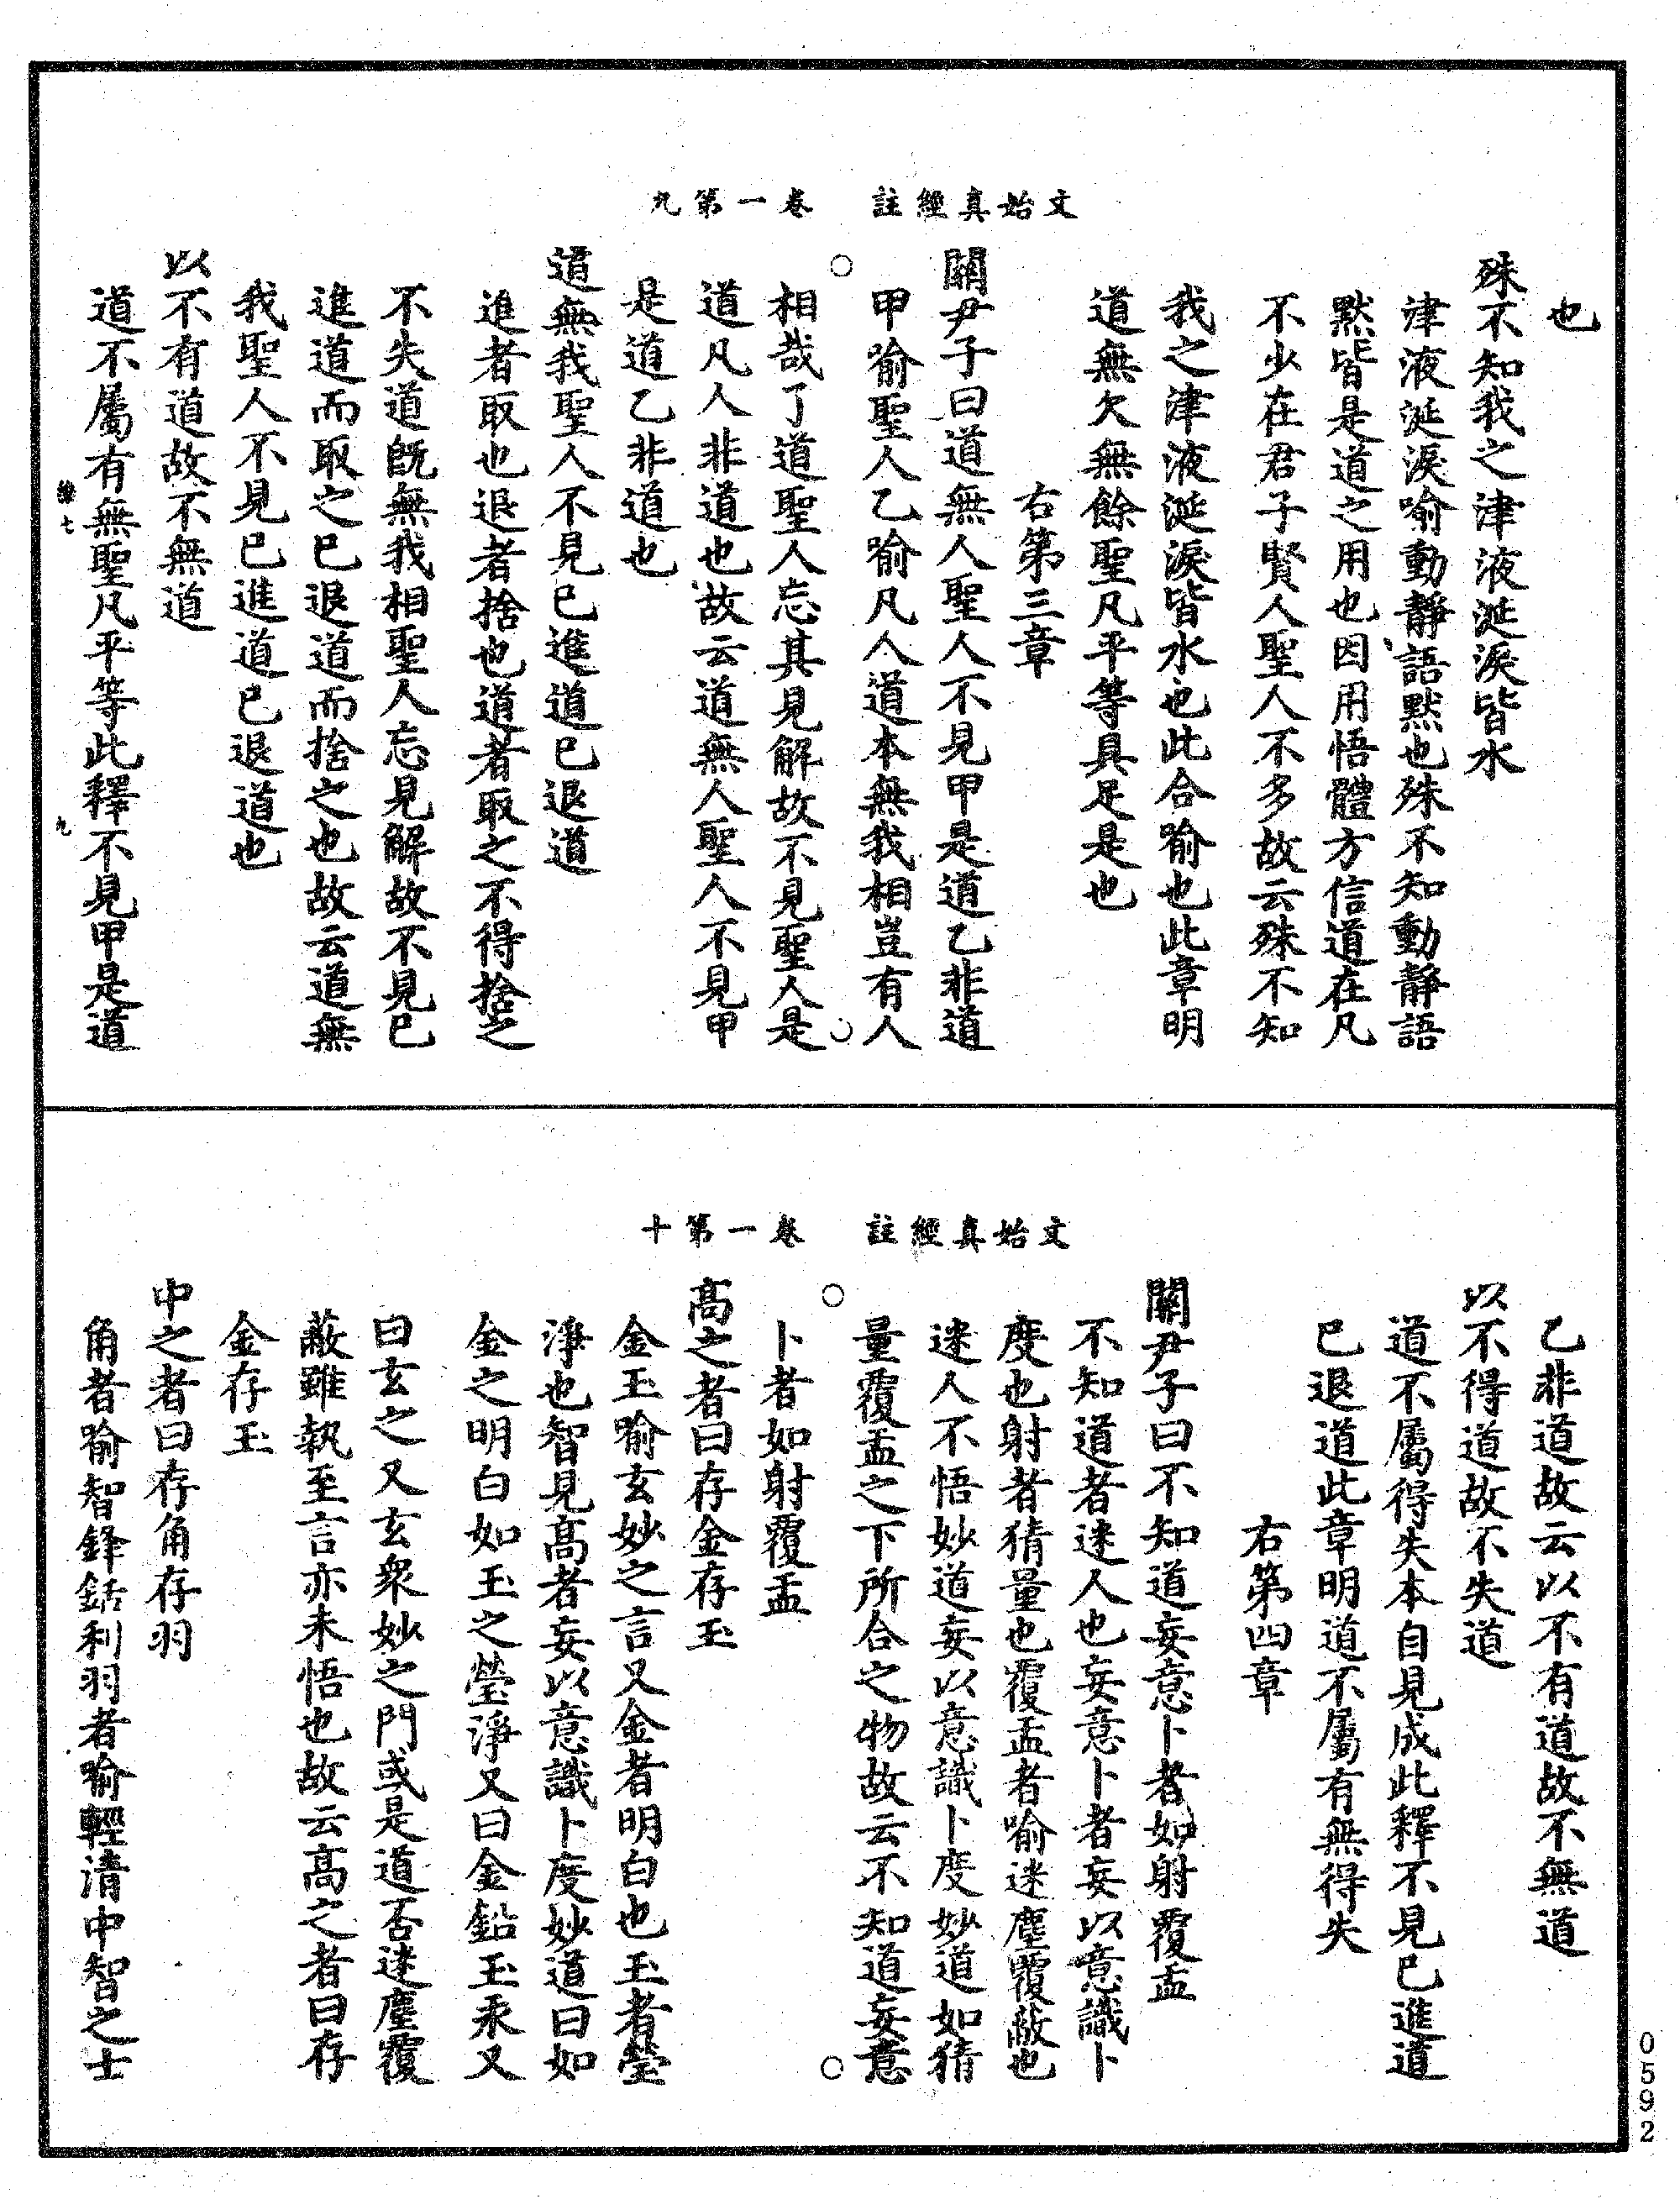 文始真經註　卷一第九
也
殊不知我之津液涎淚皆水
津液涎淚喻動靜語默也殊不知動靜語
默皆是道之用也因用悟體方信道在凡
不少在君子賢人聖人不多故云殊不知
我之津液涎淚皆水也此合喻也此章明
道無欠無餘聖凡平等具足是也
右第三章
關尹子曰道無人聖人不見甲是道乙非道
甲喻聖人乙喻凡人道本無我相豈有人
相哉了道聖人忘其見解故不見聖人是
道凡人非道也故云道無人聖人不見甲
是道乙非道也
道無我聖人不見已進道已退道
進者取也退者捨也道者取之不得捨之
不失道既無我相聖人忘見解故不見已
進道而取之已退道而捨之也故云道無
我聖人不見已進道已退道也
以不有道故不無道
道不屬有無聖凡平等此釋不見甲是道
乙非道故云以不有道故不無道
以不得道故不失道
道不屬得失本自見成此釋不見已進道
已退道此章明道不屬有無得失
右第四章
關尹子曰不知道妄意卜者如射覆盂
不知道者迷人也妄意卜者妄以意識卜
度也射者猜量也覆盂者喻迷塵覆蔽也
迷人不悟妙道妄以意識卜度妙道如猜
量覆盂之下所合之物故云不知道妄意
卜者如射覆盂
高之者曰存金存玉
金玉喻玄妙之言又金者明白也玉者瑩
淨也智見高者妄以意識卜度妙道曰如
金之明白如玉之瑩淨又曰金鉛玉汞又
曰玄之又玄眾妙之門或是道否迷塵覆
蔽雖執至言亦未悟也故云高之者曰存
金存玉
中之者曰存角存羽
角者喻智鋒銛利羽者喻輕清中智之士
文始真經註　卷一第十
七
九
0592